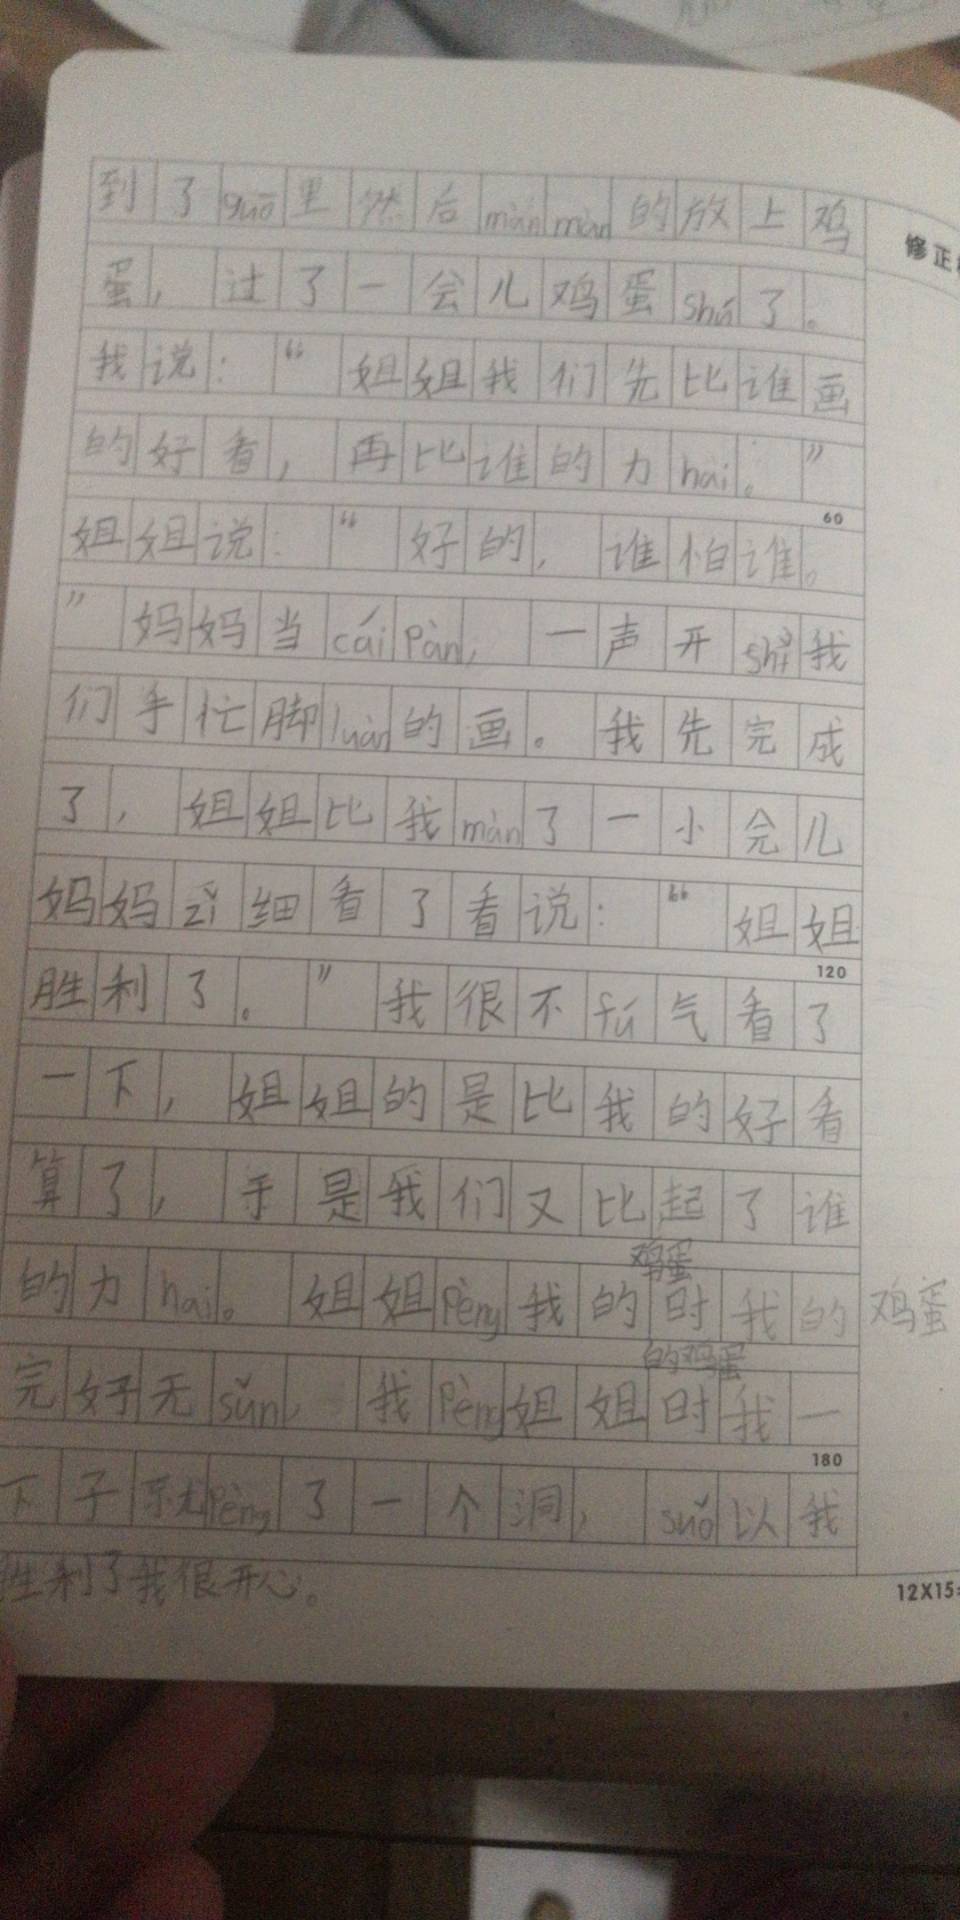 到了guō里然后mànmàn的放上鸡
修正
蛋，过了一会儿鸡蛋shú了。
我说：“姐姐我们先比谁画
的好看，再比谁的力hai。”
60
姐姐说：“好的，谁怕谁。
”妈妈当cáipàn，一声开shǐ我
们手忙脚luàn的画。我先完成
了，姐姐比我màn了一小会儿
妈妈zǐ细看了看说：“姐姐
120
胜利了。”我很不fú气看了
一下，姐姐的是比我的好看
算了，于是我们又比起了谁
鸡蛋
的力hai。姐姐pèng我的时我的鸡蛋
的鸡蛋
完好无sǔn，我pèng姐姐时我一
180
下子就pèng了一个洞，suǒ以我
胜利了我很开心。
12X15=